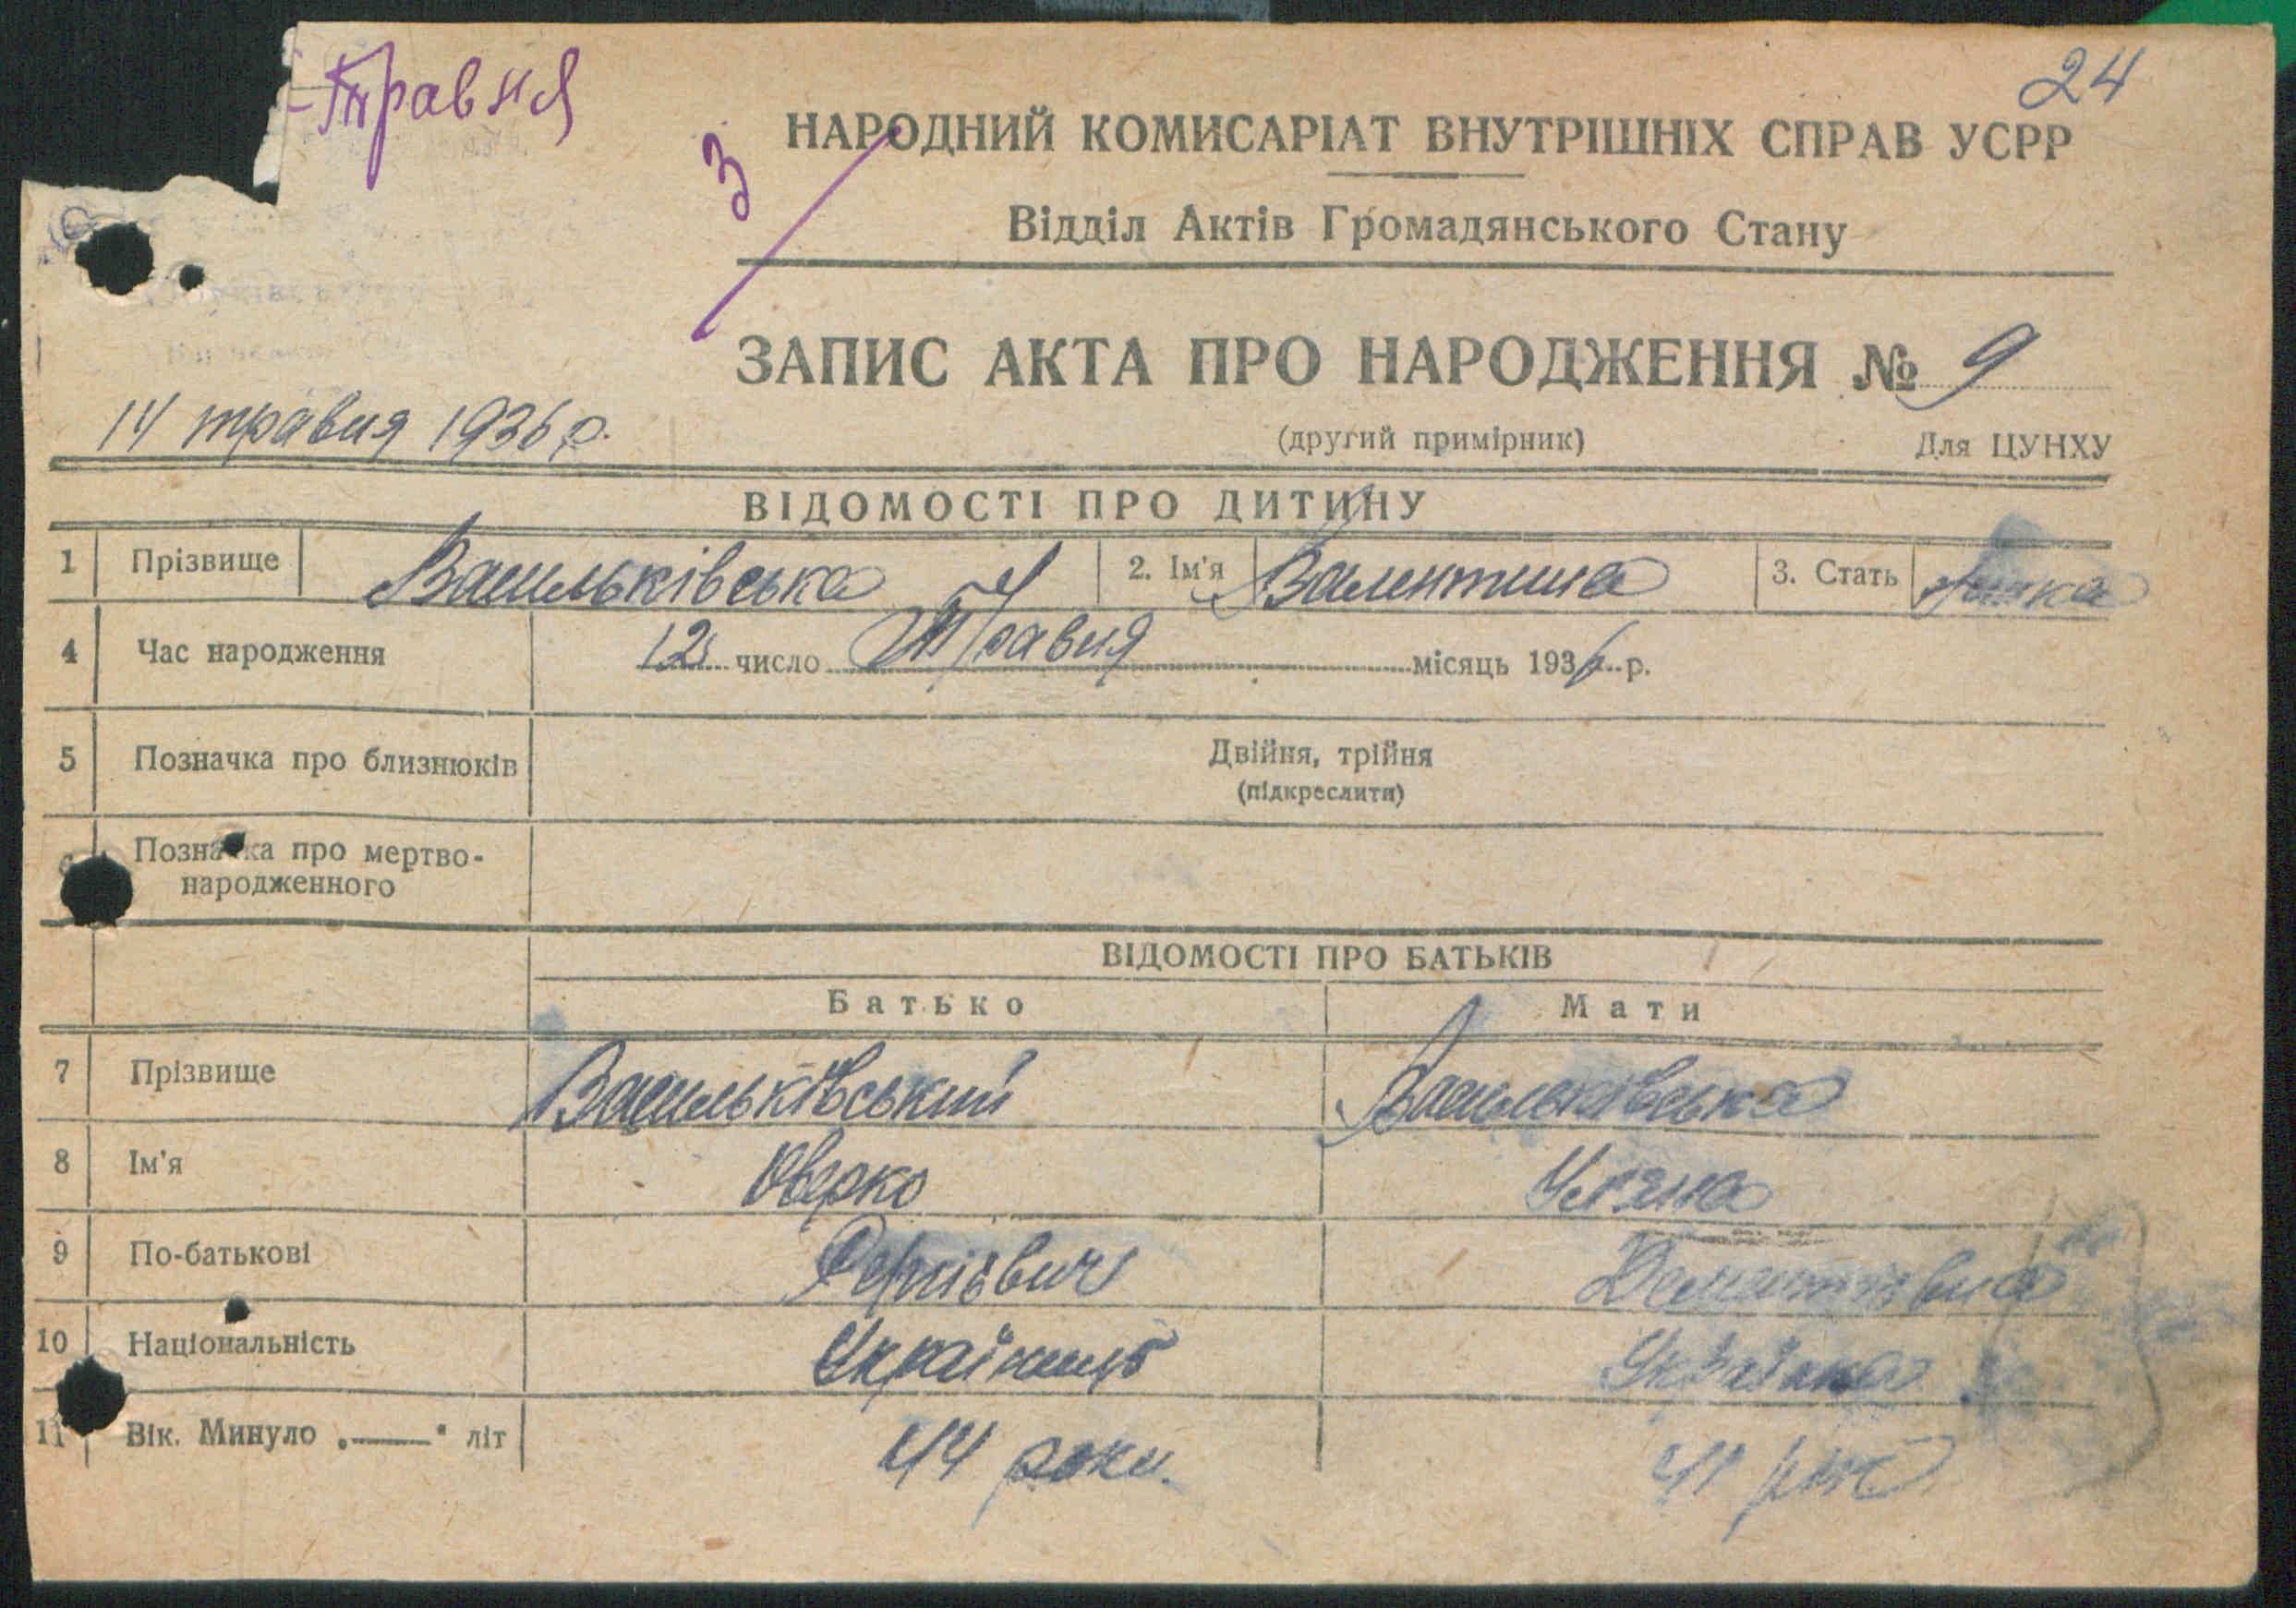 Травня
24
3
НАРОДНИЙ КОМИСАРІАТ ВНУТРІШНІХ СПРАВ УСРР
Відділ Актів Громадянського Стану
ЗАПИС АКТА ПРО НАРОДЖЕННЯ № 9
14 травня 1936 р.
(другий примірник) Для ЦУНХУ
ВІДОМОСТІ ПРО ДИТИНУ
1 Прізвище Васильківська 2. Ім'я Валентина 3. Стать жінка
4 Час народження 12 число Травня місяць 1936 р.
5 Позначка про близнюків Двійня, трійня
(підкреслити)
6 Позначка про мертво-
народженного
ВІДОМОСТІ ПРО БАТЬКІВ
Батько Мати
7 Прізвище Васильківський Васильківська
8 Ім'я Оверко Уляна
9 По-батькові Сергієвич Дементівна
10 Національність Українець Українка
11 Вік. Минуло „——“ літ 44 роки. 41 рік